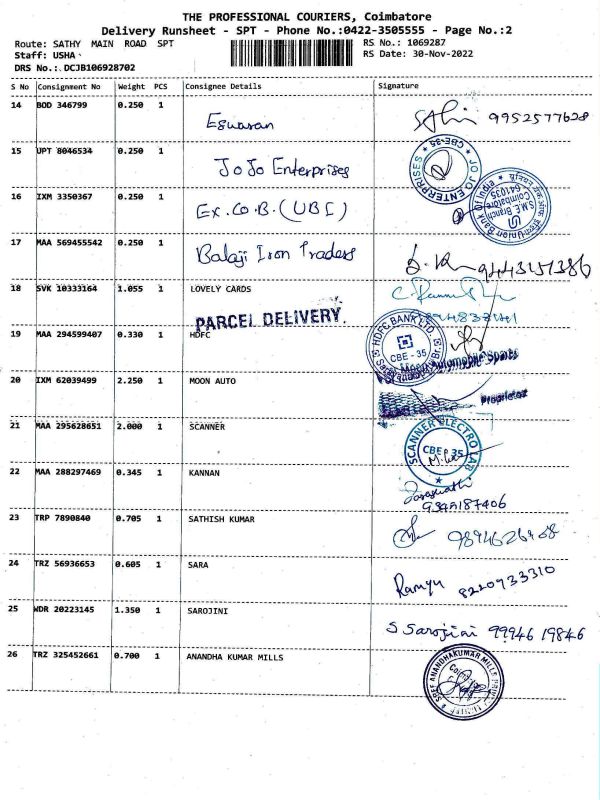 THE PROFESSIONAL COURIERS, Coimbatore
Delivery Runsheet - SPT - Phone No.:0422-3505555 - Page No.:2
Route: SATHY MAIN ROAD SPT
RS No.: 1069287
Staff: USHA
RS Date: 30-Nov-2022
DRS No.: DCJB106928702
S No Consignment No Weight PCS Consignee Details Signature
14 BOD 346799 0.250 1 Eswaran 9952577628
15 UPT 8046534 0.250 1 JoJo Enterprises JO JO ENTERPRISES CBE-35
16 IXM 3350367 0.250 1 Ex.Co.B.(UBI) Union Bank of India S.M.E. Branch Coimbatore 641035
17 MAA 569455542 0.250 1 Balaji Iron Traders 9443151386
18 SVK 10333164 1.055 1 LOVELY CARDS
PARCEL DELIVERY.
19 MAA 294599407 0.330 1 HDFC HDFC BANK LTD. CBE - 35
Automobile Spares
20 IXM 62039499 2.250 1 MOON AUTO Proprietor
21 MAA 295628651 2.000 1 SCANNER SCANNER ELECTRO LAB CBE 35
22 MAA 288297469 0.345 1 KANNAN
23 TRP 7890840 0.705 1 SATHISH KUMAR
24 TRZ 56936653 0.605 1 SARA Ramya 8220733310
25 WDR 20223145 1.350 1 SAROJINI S Sarojini 99946 19846
26 TRZ 325452661 0.700 1 ANANDHA KUMAR MILLS SREE ANANDHAKUMAR MILLS